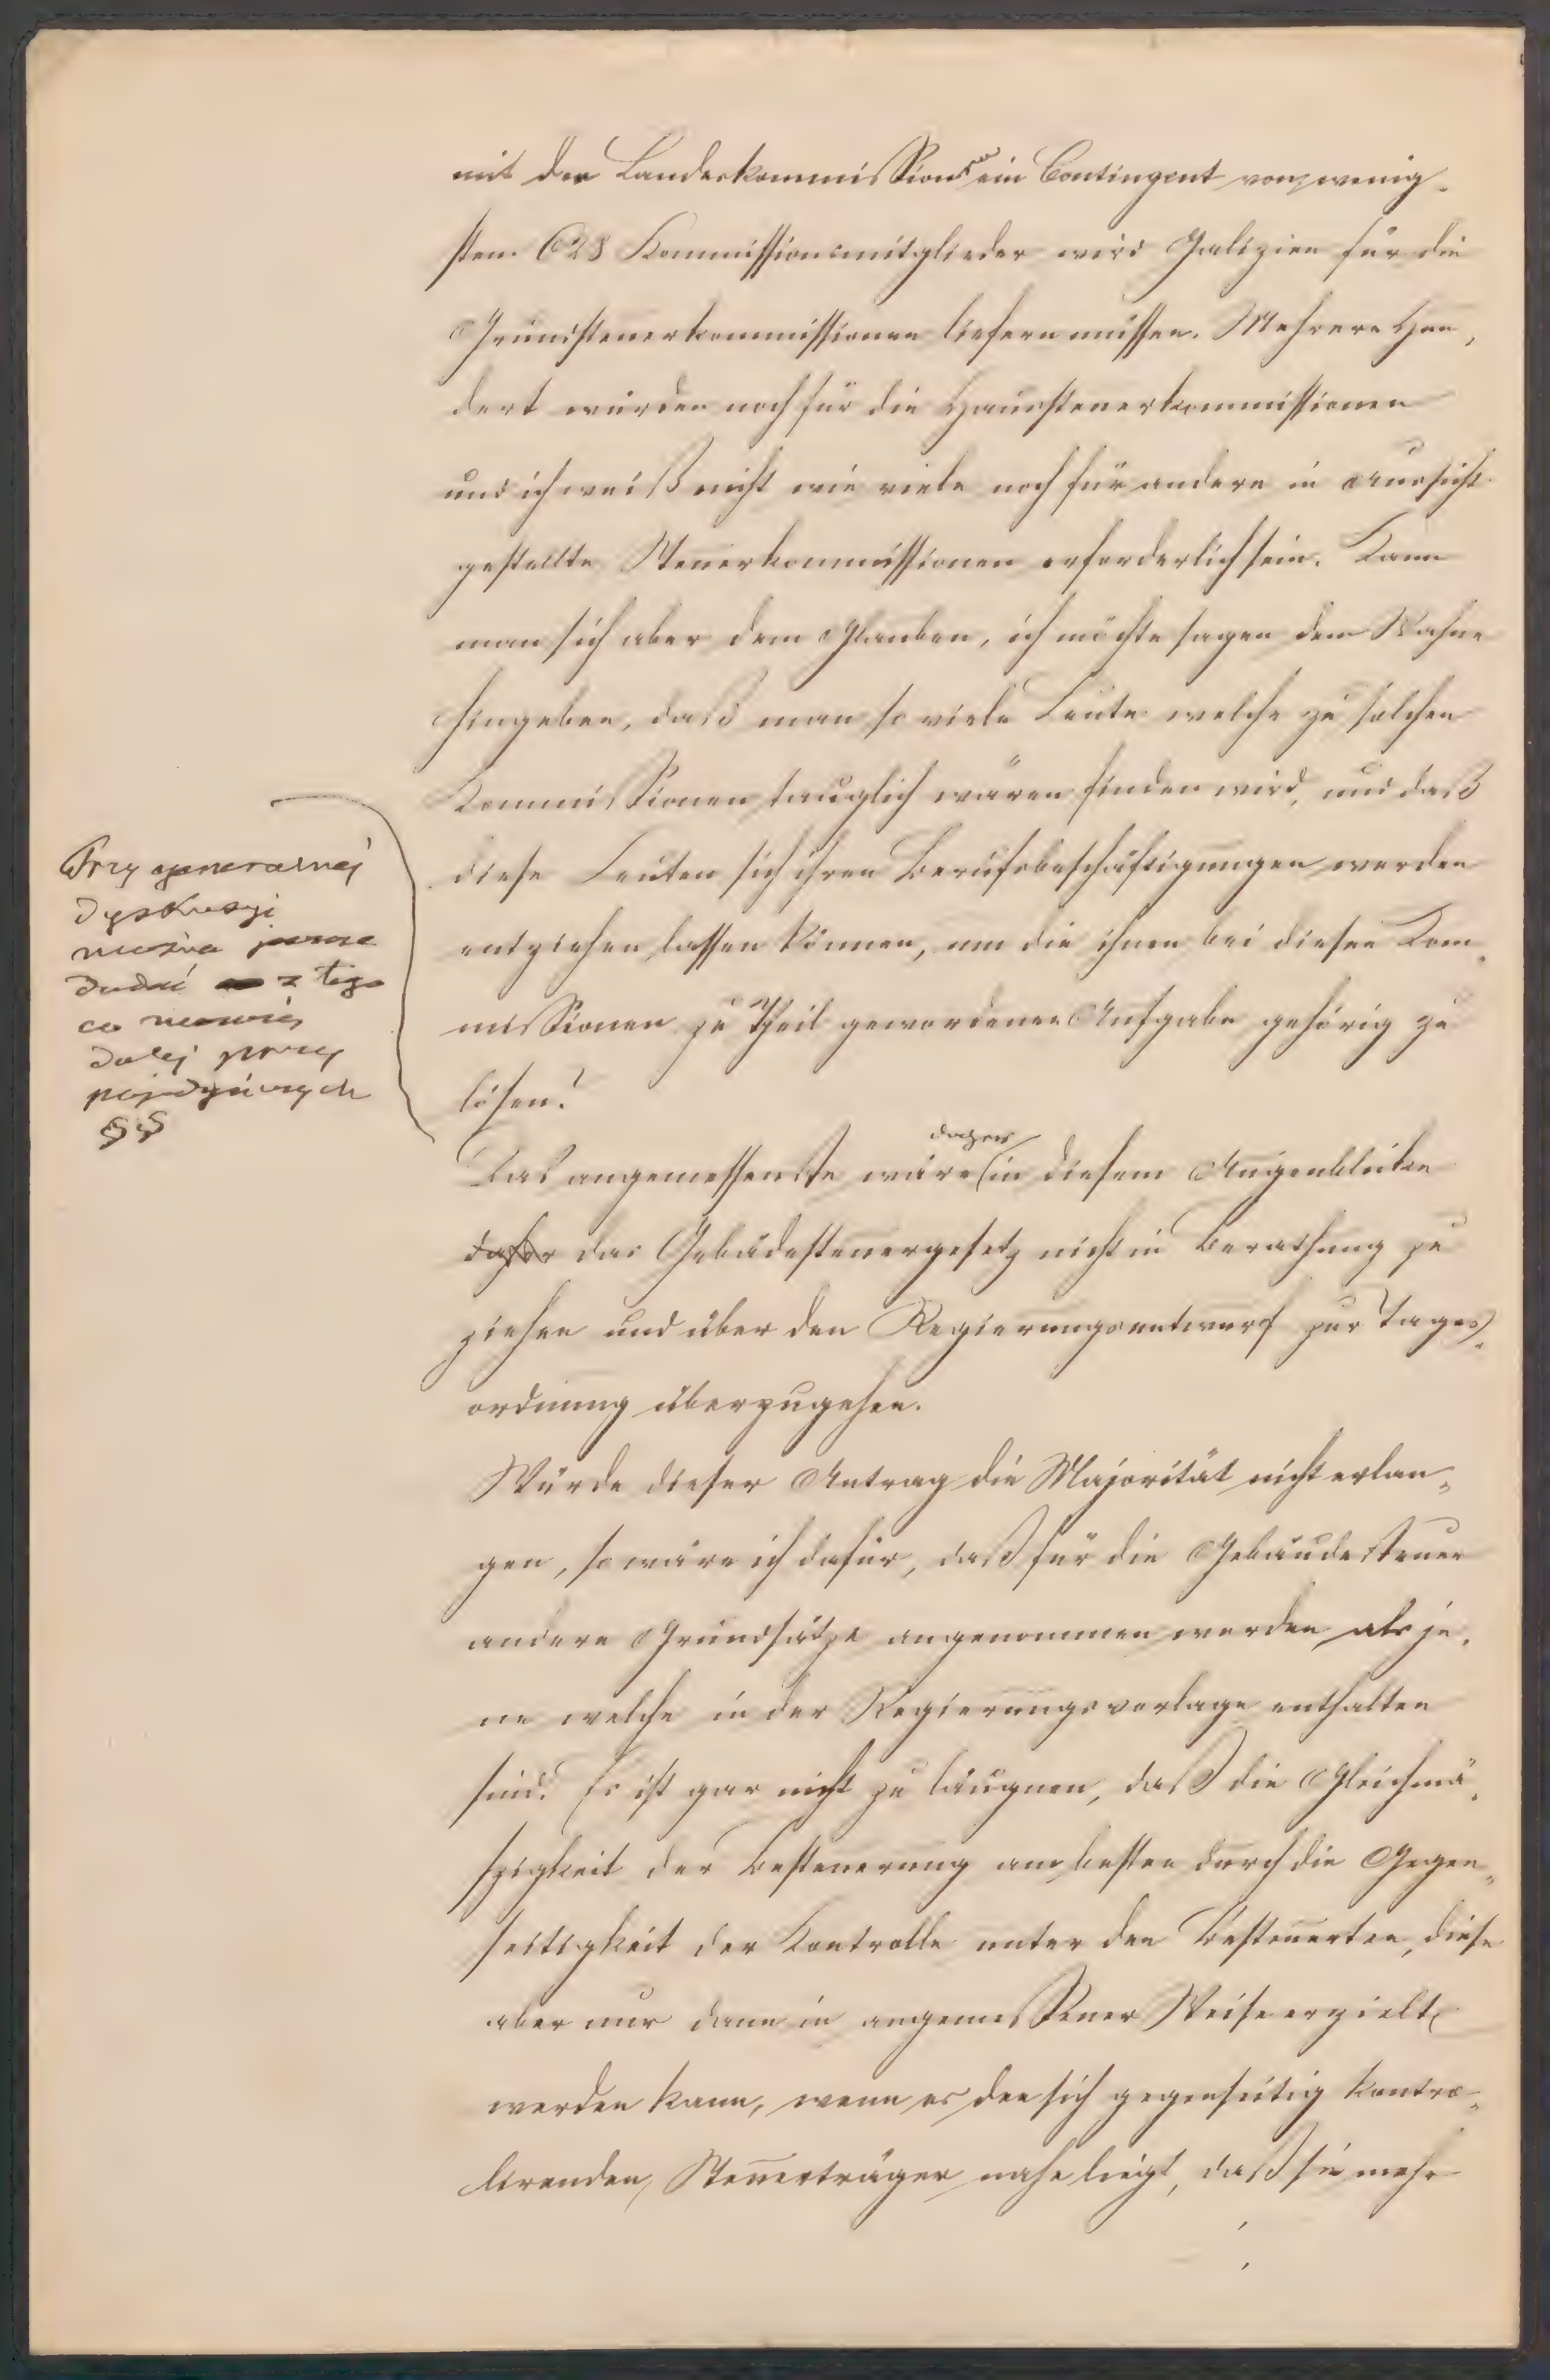 mit der Landeskommission ein Contingent von wenig-
stens 628 Kommissionsmitglieder wird Galizien für die
Grundsteuerkommissionen liefern müssen. Mehrere Hun-
dert würden noch für die Haussteuerkommissionen
und ich weiß nicht wie viele noch für andere in Aussicht
gestellte Steuerkommissionen erforderlich sein. Kann
man sich aber dem Glauben, ich möchte sagen dem Wahne
hingeben, daß man so viele Leute welche zu solchen
Kommissionen tauglich wären finden wird, und daß
diese Leuten sich ihren Berufsbeschäftigungen werden
entziehen lassen können, um die ihnen bei diesen Kom-
missionen zu Theil gewordenen Aufgabe gehörig zu
lösen?
Przy generalnej
dyskusyi
można
dodać z tego
co
dalej przy
pojedyńczych
§§
Das angemessenste wäre daher in diesem Augenblicke
daher das Gebädesteuergesetz nicht in Berathung zu
ziehen und über den Regierungsentwurf zur Tages-
ordnung überzugehen.
Würde dieser Antrag die Majorität nicht erlan-
gen, so wäre ich dafür, daß für die Gebäudesteuer
andere Grundsätze angenommen werden als je-
ne welche in der Regierungsvorlage enthalten
sind. Es ist gar nicht zu läugnen, daß die Gleichmä-
szigkeit der Besteuerung am besten durch die Gegen-
seitigkeit der Kontrolle unter den Besteuerten, diese
aber nur dann in angemessener Weise erzielt
werden kann, wenn es den sich gegenseitig kontro-
lirenden Steuerträger nahe liegt, daß sie mehr